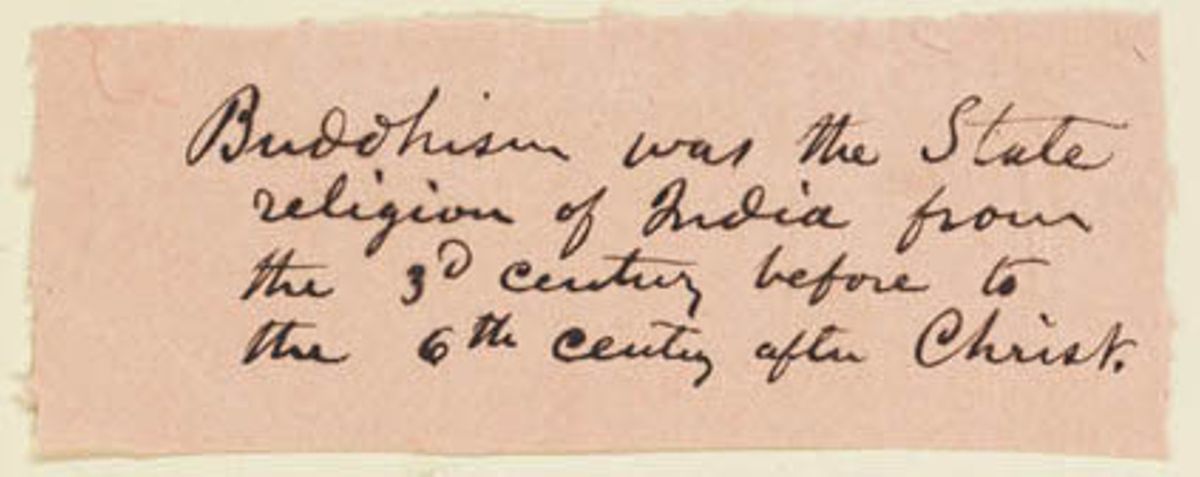 Buddhism was the State
religion of India from
the 3d century before to
the 6th century after Christ.